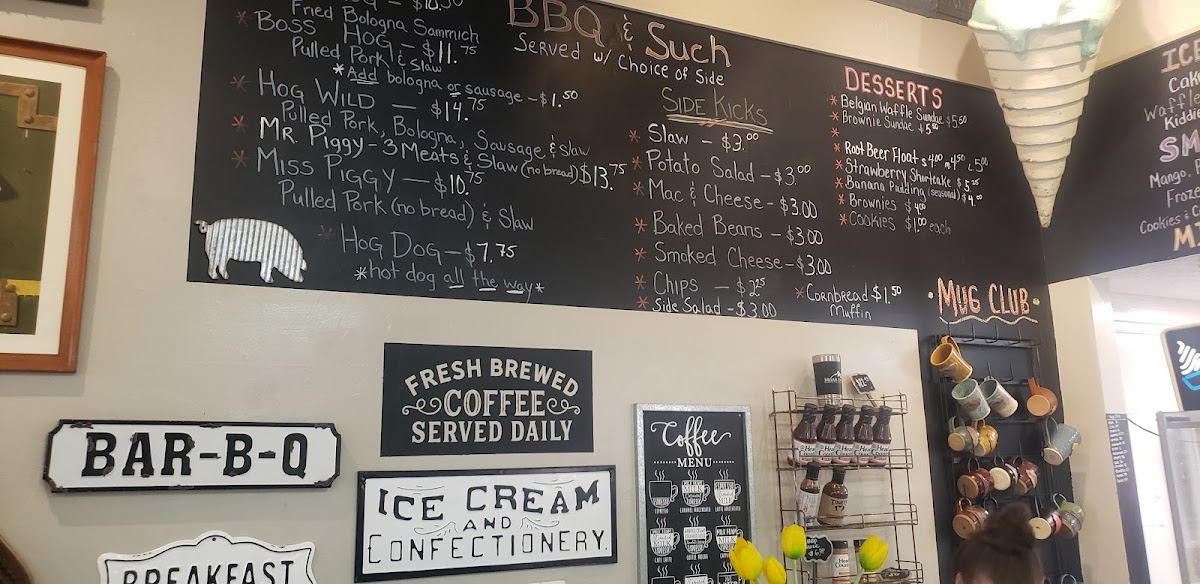 Fried Bologna Sammich
* Boss Hog - $11.75
Pulled Pork & Slaw
*Add bologna or sausage - $1.50
* Hog Wild — $14.75
Pulled Pork, Bologna, Sausage & Slaw
* Mr. Piggy - 3 Meats & Slaw (no bread) $13.75
* Miss Piggy — $10.75
Pulled Pork (no bread) & Slaw
* Hog Dog — $7.75
*hot dog all the way*
BBQ & Such
Served w/ Choice of Side
Side Kicks
* Slaw - $3.00
* Potato Salad - $3.00
* Mac & Cheese - $3.00
* Baked Beans - $3.00
* Smoked Cheese - $3.00
* Chips - $2.25
* Side Salad - $3.00
* Cornbread $1.50
Muffin
Desserts
* Belgian Waffle Sundae $5.50
* Brownie Sundae
*
* Root Beer Float $4.00 4.50 5.00
* Strawberry Shortcake
* Banana Pudding (seasonal) $4.00
* Brownies $4.00
* Cookies $1.00 each
ICE
Cake
Waffle
Kiddie
SM
Mango,
Froze
Cookies & C
MI
• Mug Club •
FRESH BREWED
COFFEE
SERVED DAILY
BAR-B-Q
ICE CREAM
AND
CONFECTIONERY.
BREAKFAST
Coffee
MENU